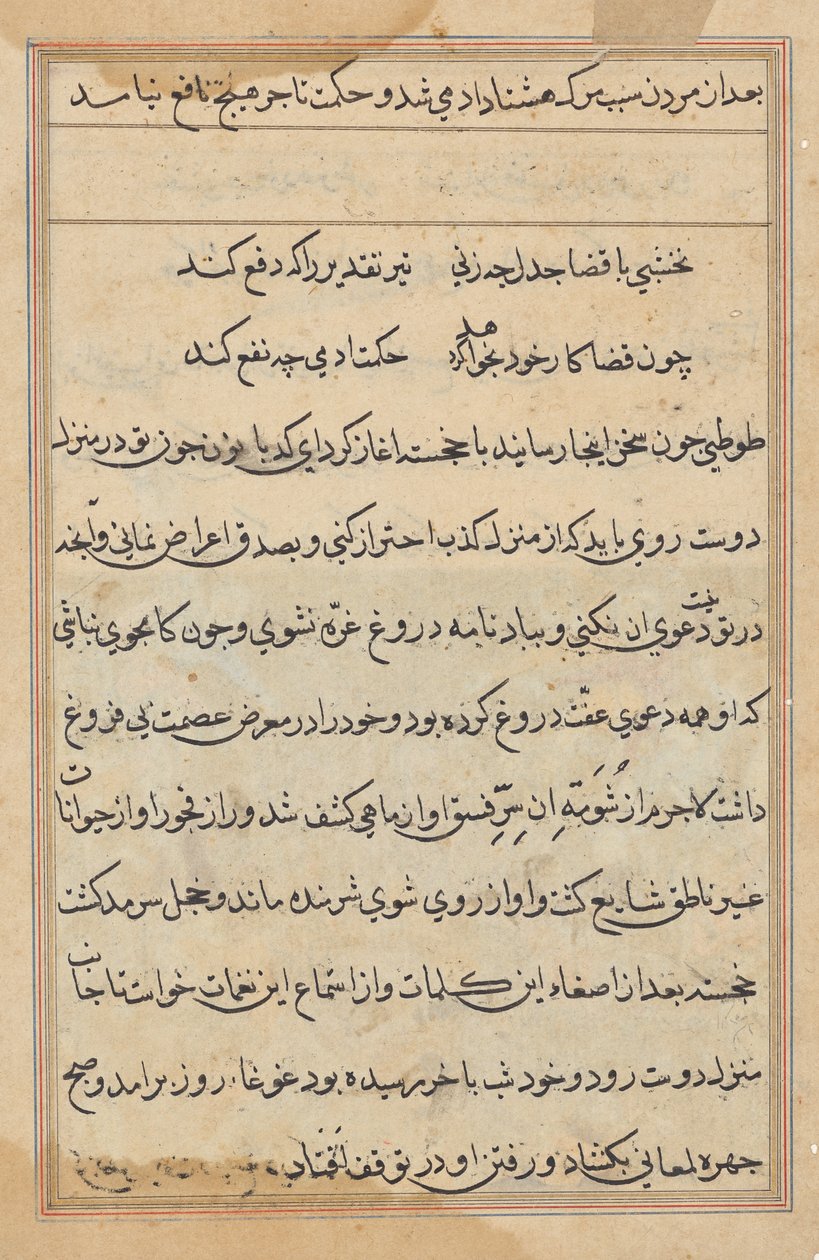 بعد از مردن سبب مرک هشتاد ادمی شد و حکمت تاجر هیچ نافع نیامد
نخشبی با قضا جدل چه زنی تیر تقدیر را که دفع کند
چون قضا کار خود بخواهد کرد حکمت ادمی چه نفع کند
طوطی چون سخن اینجا رسانید با خجسته اغاز کرد ای کدبانو زن چون تو در منزل
دوست روی باید که از منزل کذب احتراز کنی و بصدق اعراض نمائی و آنچه
در تو نیست دعوی ان نکنی و بباد نامه دروغ غرّه نشوی و چون کامجوی نباشی
که او همه دعوی عفّت دروغ کرده بود و خود را در معرض عصمت بی فروغ
داشت لاجرم از شُومَتهِ ان سِرِّ فسق او از ماهی کشف شد و راز فجور او از حیوانات
غیر ناطق شایع کشت و او از روی شوی شرمنده ماند و خجل سرمد کشت
خجسته بعد از اصغاء این کلمات و از استماع این نغمات خواست تا جانب
منزل دوست رود و خود شب باخر رسیده بود غوغاء روز برامد و صبح
چهره لمعانی بکشاد و رفتن او در توقف اُفتاد